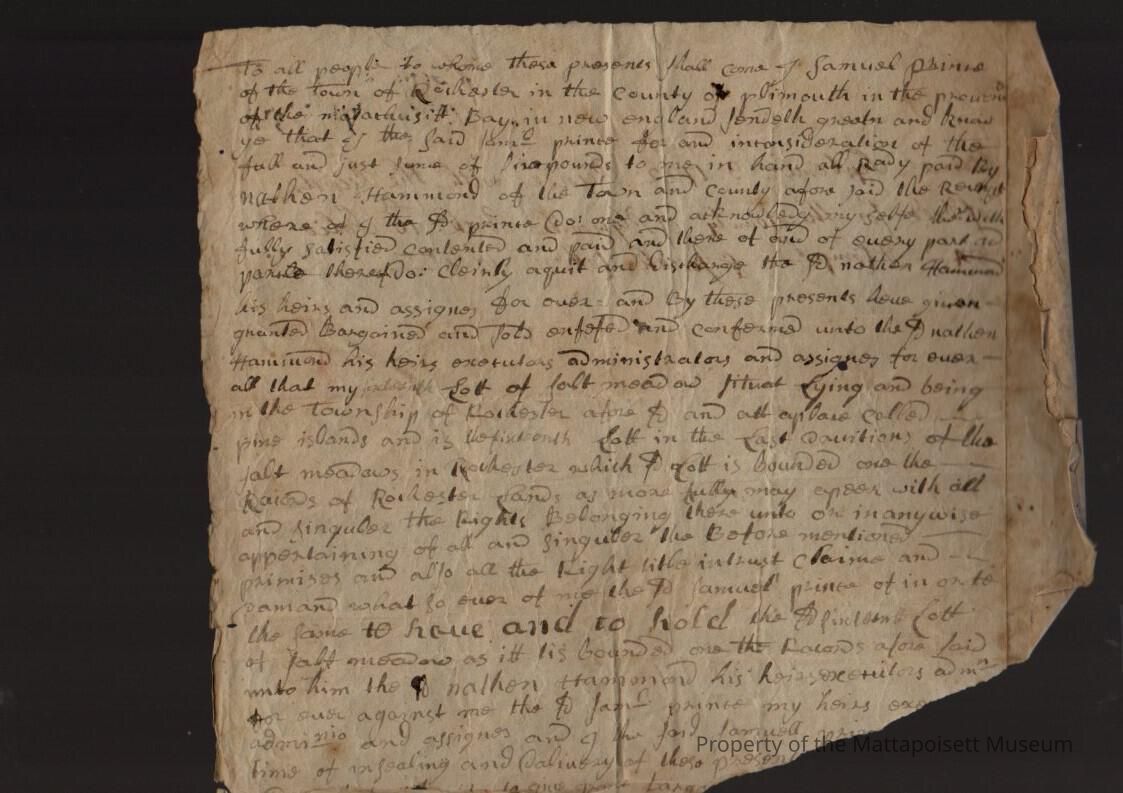 To all people to whome these presents shall come I Samuel Prince
of the Town of Rochester in the County of plimouth in the
of the Bay in new england sendeth and know
ye that I the said Saml prince for and inconsideration of the
full and just sume of pounds to me in hand all Rady paid By
nathen Hammond of the Town and County afore said the
where of I the sd prince do: one and acknowledg my selfe
fully satisfied contented and paid and there of and of every part and
thereof do: Cleirly aquit and discharge the sd nathen Hammond
his heirs and assignes for ever and By these presents have given
granted Bargained and sold enfefed and confermed unto the sd nathen
Hammond his heirs executors administrators and assignes for ever
all that my Lott of salt meadow situat Lying and being
in the Township of Rochester afore sd and att aplace Called
pine islands and is the Lott in the Last of the
salt meadows in Rochester which sd Lott is bounded one the
Racords of Rochester Lands as more fully may apeer with all
and singuler the Rights Belonging there unto or inanywise
appertaining of all and singuler the Before mentioned
primises and also all the Right title intrust Claime and
what so ever of me the sd Samuel prince of in or to
the same to have and to hold the sd Lott
of salt meadow as itt is bounded one the Racords afore said
unto him the sd nathen Hammond his heirs executors
for ever against me the sd Saml prince my heirs
and assignes and I the said Samuel
time of insealing and Dalivery of these
Property of the Mattapoisett Museum